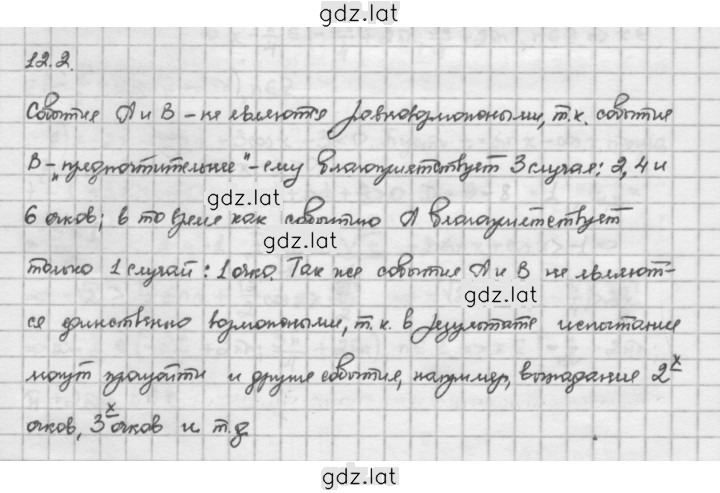 gdz.lat
12.2.
Событие A и B - не являются равновозможными, т.к. событие
B - "предпочтительнее" - ему благоприятствует 3 случая: 2, 4 и
gdz.lat
6 очков; в то время как событию A благоприятствует
gdz.lat
только 1 случай: 1 очко. Так же события A и B не являют-
gdz.lat
ся единственно возможными, т.к. в результате испытание
могут произойти и другие события, например, выпадание 2х
очков, 3х очков и т.д
gdz.lat